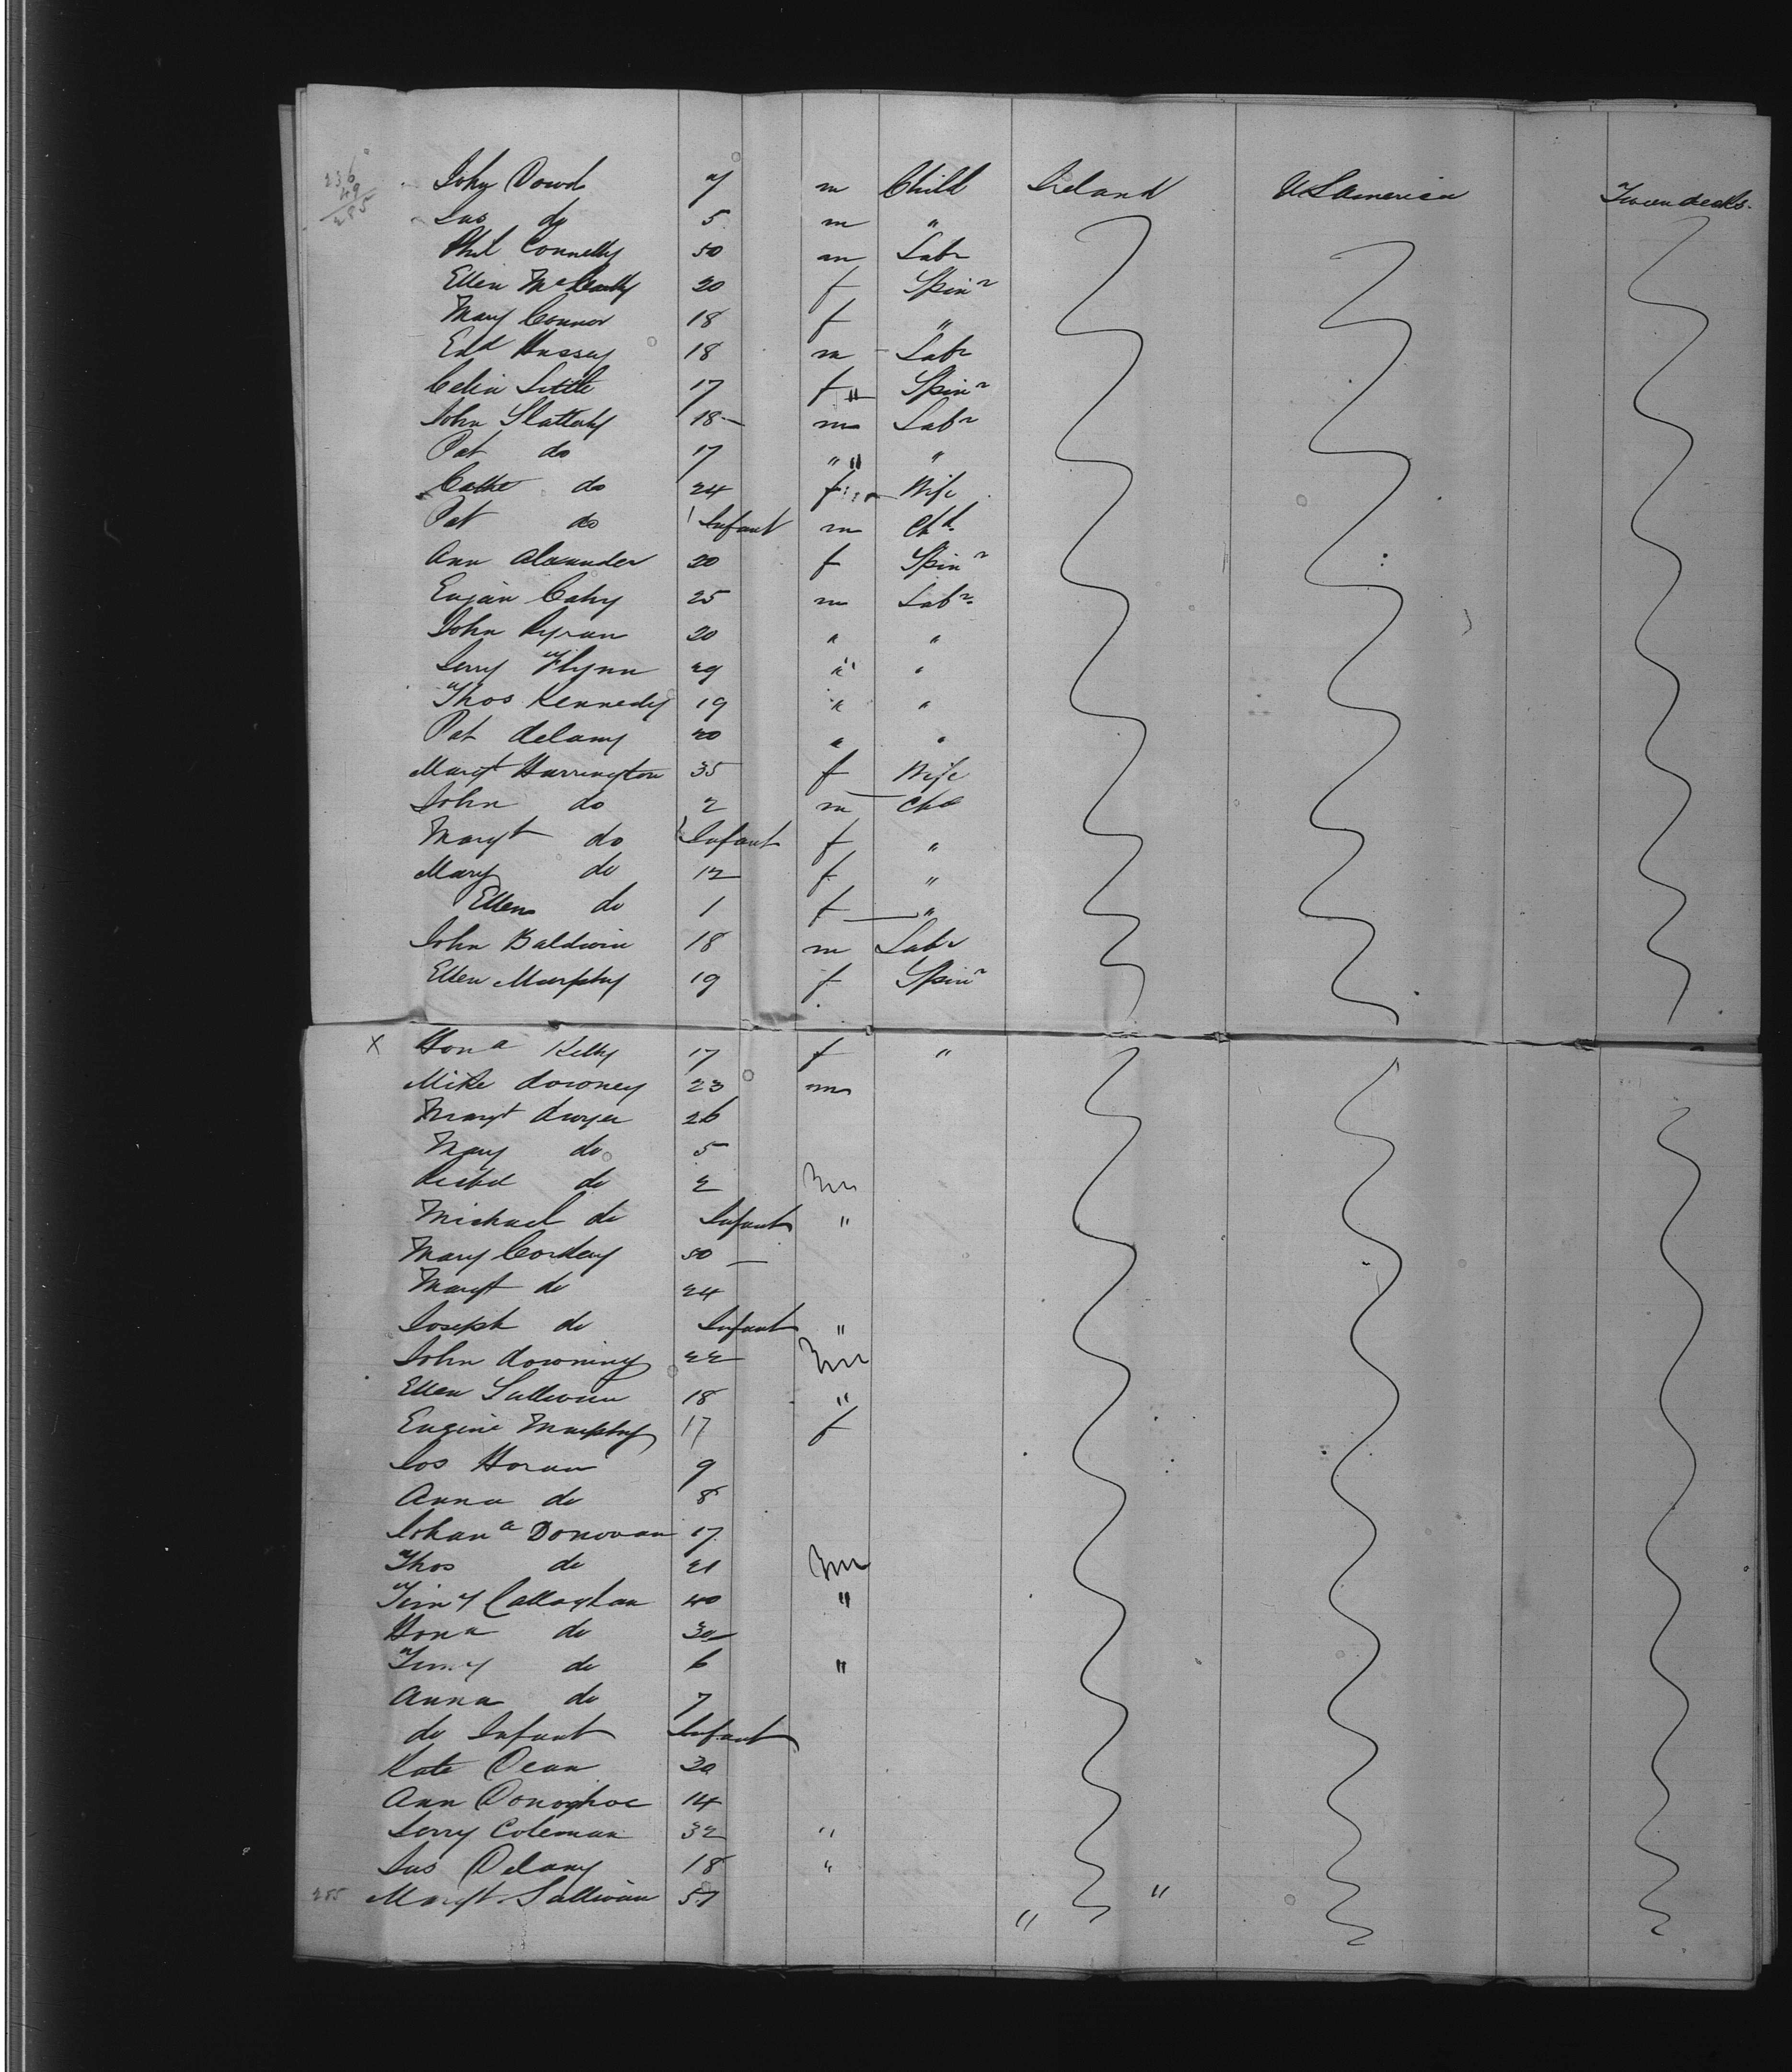 236
49
285
John Dowd 7 m Child Ireland U S America Tween decks.
Jas do 5 m "
Phil Connelly 50 m Labr
Ellen McCarthy 20 f Spinr
Mary Connor 18 f "
Edd Hussey 18 m Labr
Celia Little 17 f " Spinr
John Slattery 18 m Labr
Pat do 17 " " "
Cathe do 24 f Wife
Pat do Infant m Chd.
Ann Alexander 20 f Spinr
Eugán Cahy 25 m Labr.
John Ryran 20 " "
Jerry Flynn 29 " "
Thos Kennedy 19 " "
Pat delany 20 " "
Margt Harrington 35 f Wife
John do 2 m Chd
Margt do Infant f "
Mary do 12 f "
Ellen do 1 f "
John Baldwin 18 m Labr
Ellen Murphy 19 f Spinr
x Hona Kelly 17 f "
Mike downey 23 m
Margt dwyer 26
Mary do 5
Richd do 2 m
Michael do Infant "
Mary Corkery 50
Margt do 24
Joseph do Infant "
John downing 22 m
Ellen Sullivan 18 "
Eugine Murphy 17 f
Jos Horan 9
Anna do 8
Johana Donovan 17
Thos do 21 m
Timy Callaghan 40 "
Hona do 30
Timy do 6 "
Anna do 7
do Infant Infant
Kate Dean 30
Ann Donoghoe 14
Jerry Coleman 32 "
Jas Delany 18 "
285 Margt Sullivan 57 " "